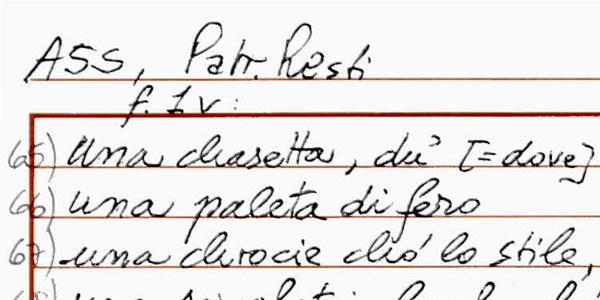 ASS, Patr. Resti
f. 1 v:
65) una chasetta, du' [=dove]
66) una paleta di fero
67) una chrocie chó lo stile,